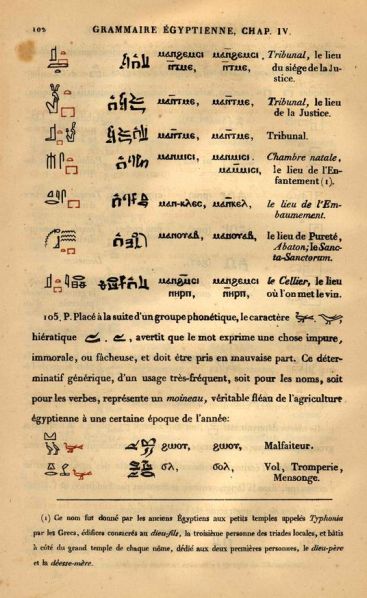 102 GRAMMAIRE ÉGYPTIENNE, CHAP. IV.
ⲙⲁⲛϩⲉⲙⲥⲓ ⲙⲁⲛ̄ϩⲉⲙⲥⲓ, Tribunal, le lieu
ⲛ̄ⲧⲙⲉ, ⲛ̄ⲧⲙⲉ, du siége de la Ju-
stice.
ⲙⲁⲛⲧⲙⲉ, ⲙⲁⲛ̄ⲧⲙⲉ, Tribunal, le lieu
de la Justice.
ⲙⲁⲛ̄ⲧⲙⲉ, ⲙⲁⲛ̄ⲧⲙⲉ, Tribunal.
ⲙⲁⲛⲙⲓⲥⲓ, ⲙⲁⲛⲙⲓⲥⲓ. Chambre natale,
ⲙⲁⲙⲙⲓⲥⲓ, le lieu de l'En-
fantement (1).
ⲙⲁⲛ-ⲕⲗⲉⲥ, ⲙⲁⲛ̄ⲕⲉⲗ, le lieu de l'Em-
baumement.
ⲙⲁⲛⲟⲩⲁⲃ, ⲙⲁⲛⲟⲩⲁⲃ, le lieu de Pureté,
Abaton; le Sanc-
ta-Sanctorum.
le Cellier, le lieu
ⲡⲏⲣⲡ, ⲡⲏⲣⲡ, où l'on met le vin.
105. P. Placé à la suite d'un groupe phonétique, le caractère
hiératique , avertit que le mot exprime une chose impure,
immorale, ou fâcheuse, et doit être pris en mauvaise part. Ce déter-
minatif générique, d'un usage très-fréquent, soit pour les noms, soit
pour les verbes, représente un moineau, véritable fléau de l'agriculture
égyptienne à une certaine époque de l'année:
ϩⲱⲟⲧ, ϩⲱⲟⲧ, Malfaiteur.
ϭⲗ, ϭⲟⲗ, Vol, Tromperie,
Mensonge.
(1) Ce nom fut donné par les anciens Égyptiens aux petits temples appelés Typhonia
par les Grecs, édifices consacrés au dieu-fils, la troisième personne des triades locales, et bâtis
à côté du grand temple de chaque nôme, dédié aux deux premières personnes, le dieu-père
et la déesse-mère.